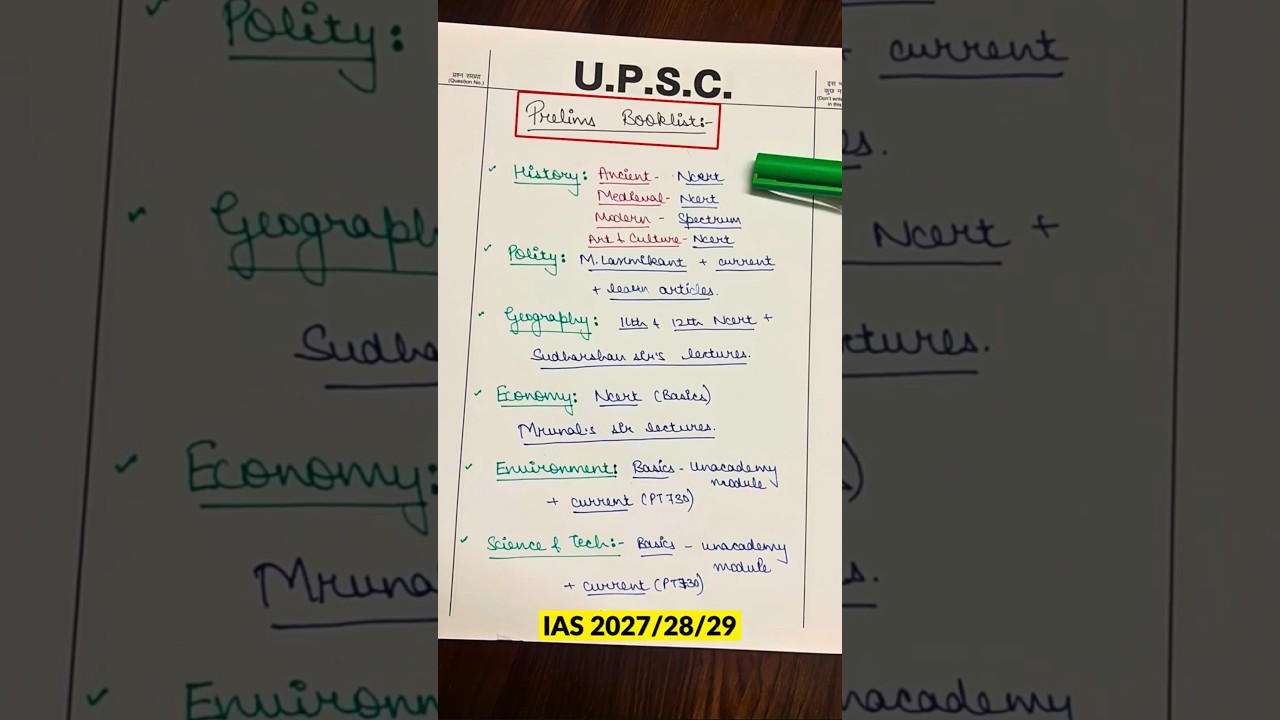 U.P.S.C.
प्रश्न संख्या
(Question No.)
Prelims Booklist:-
History: Ancient - Ncert
Medieval - Ncert
Modern - Spectrum
Art & Culture - Ncert
Polity: M. Laxmikant + current
+ learn articles.
Geography: 11th & 12th Ncert +
Sudharshan sir's lectures.
Economy: Ncert (Basics)
Mrunal's sir lectures.
Environment: Basics - Unacademy
module
+ current (PT730)
Science & Tech:- Basics - unacademy
module
+ current (PT730)
IAS 2027/28/29
Polity:
+ current
Geograph
Ncert +
Sudha
ctures.
Economy:
Mruna
Environm
nacademy